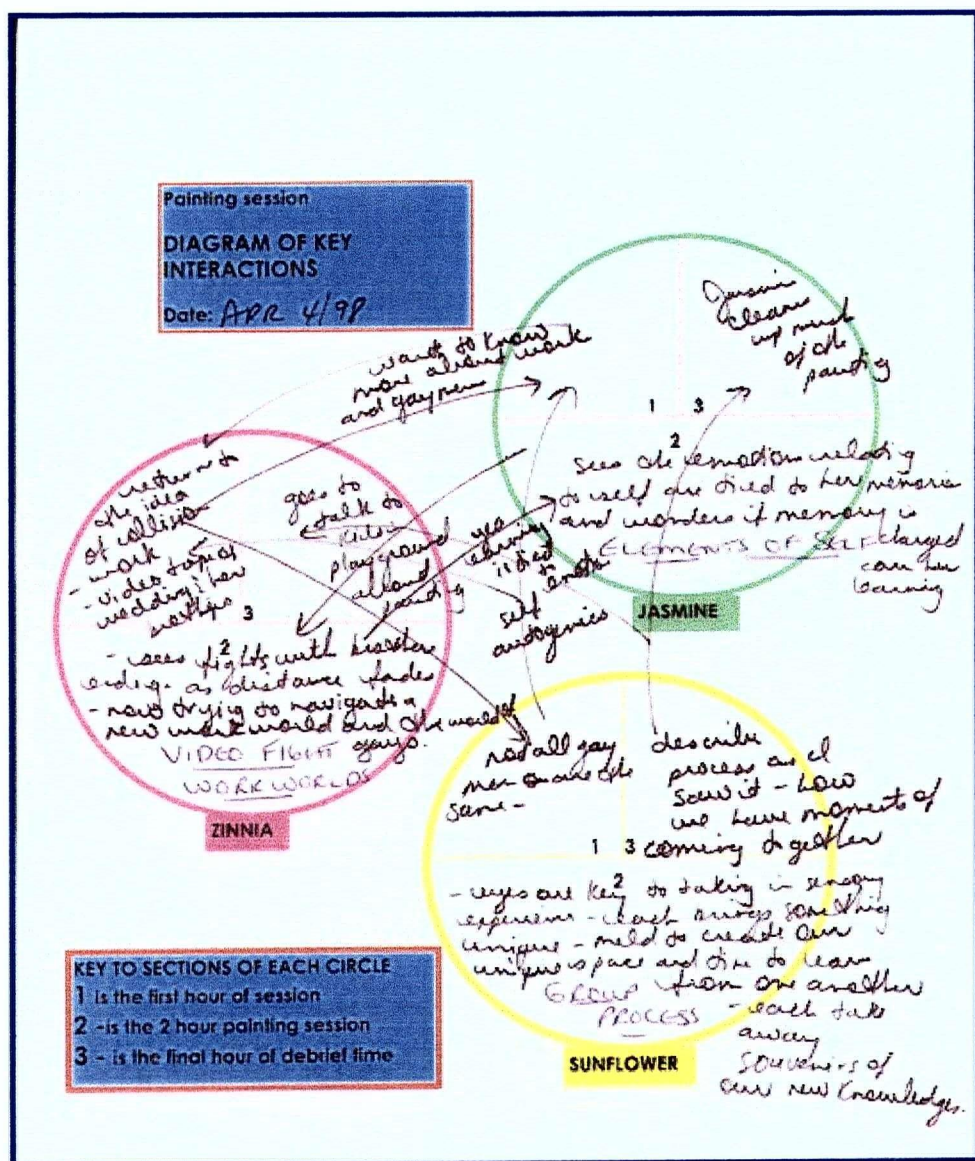 Painting session
DIAGRAM OF KEY
INTERACTIONS
Date: APR 4/98
want to know
more about work
and gay men
Jasmine
cleans
up much
of the
painting
1 3
2
sees the emotions relating
to self are tied to her memories
and wonders if memory is
ELEMENTS OF SELF charged
can her
learning
JASMINE
returns to
the idea
of collision
- work
- video tape of
wedding; her
goes to
talk to
kids in
playground
about
painting
yes
learning
is tied
to
emotion
self
3
2
- sees fights with
ending. as distance fades
- now trying to navigate a
new work world and the world of
gays.
VIDEO FIGHT
WORK WORLDS
ZINNIA
not all gay
men are the
same -
describe
process as I
saw it - how
we have moments of
coming together
1 3
2
- eyes are key to taking in sensory
experience - each brings something
unique - meld to create our
unique space and time to learn
from one another
GROUP
PROCESS
- each take
away
souvenirs of
our new knowledges.
SUNFLOWER
KEY TO SECTIONS OF EACH CIRCLE
1 is the first hour of session
2 -is the 2 hour painting session
3 - is the final hour of debrief time